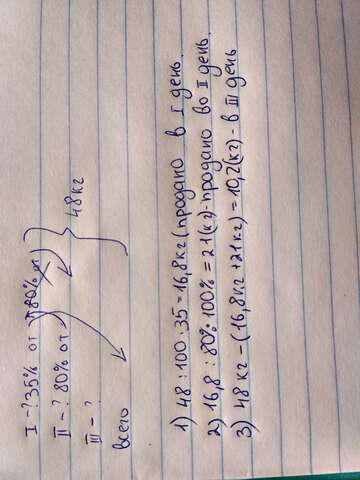 I - ? 35% от
II - ? 80% от
III - ?
всего
48кг
1) 48 : 100 · 35 = 16,8кг (продано в I день.
2) 16,8 : 80% · 100% = 21(кг) - продано во II день.
3) 48 кг - (16,8кг + 21кг) = 10,2(кг) - в III день